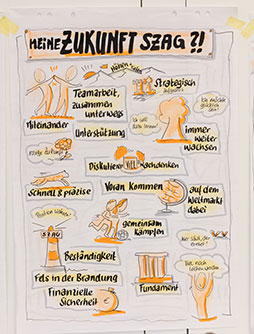 MEINE ZUKUNFT SZAG ?!
Strategisch
Teamarbeit,
zusammen
unterwegs
Miteinander
Unterstützung
immer
weiter
wachsen
Diskutieren VIEL! Nachdenken
Schnell & präzise
Voran kommen
auf dem
Weltmarkt
dabei
gemeinsam
kämpfen
SZAG
Beständigkeit
Fels in der Brandung
Fundament
Finanzielle
Sicherheit